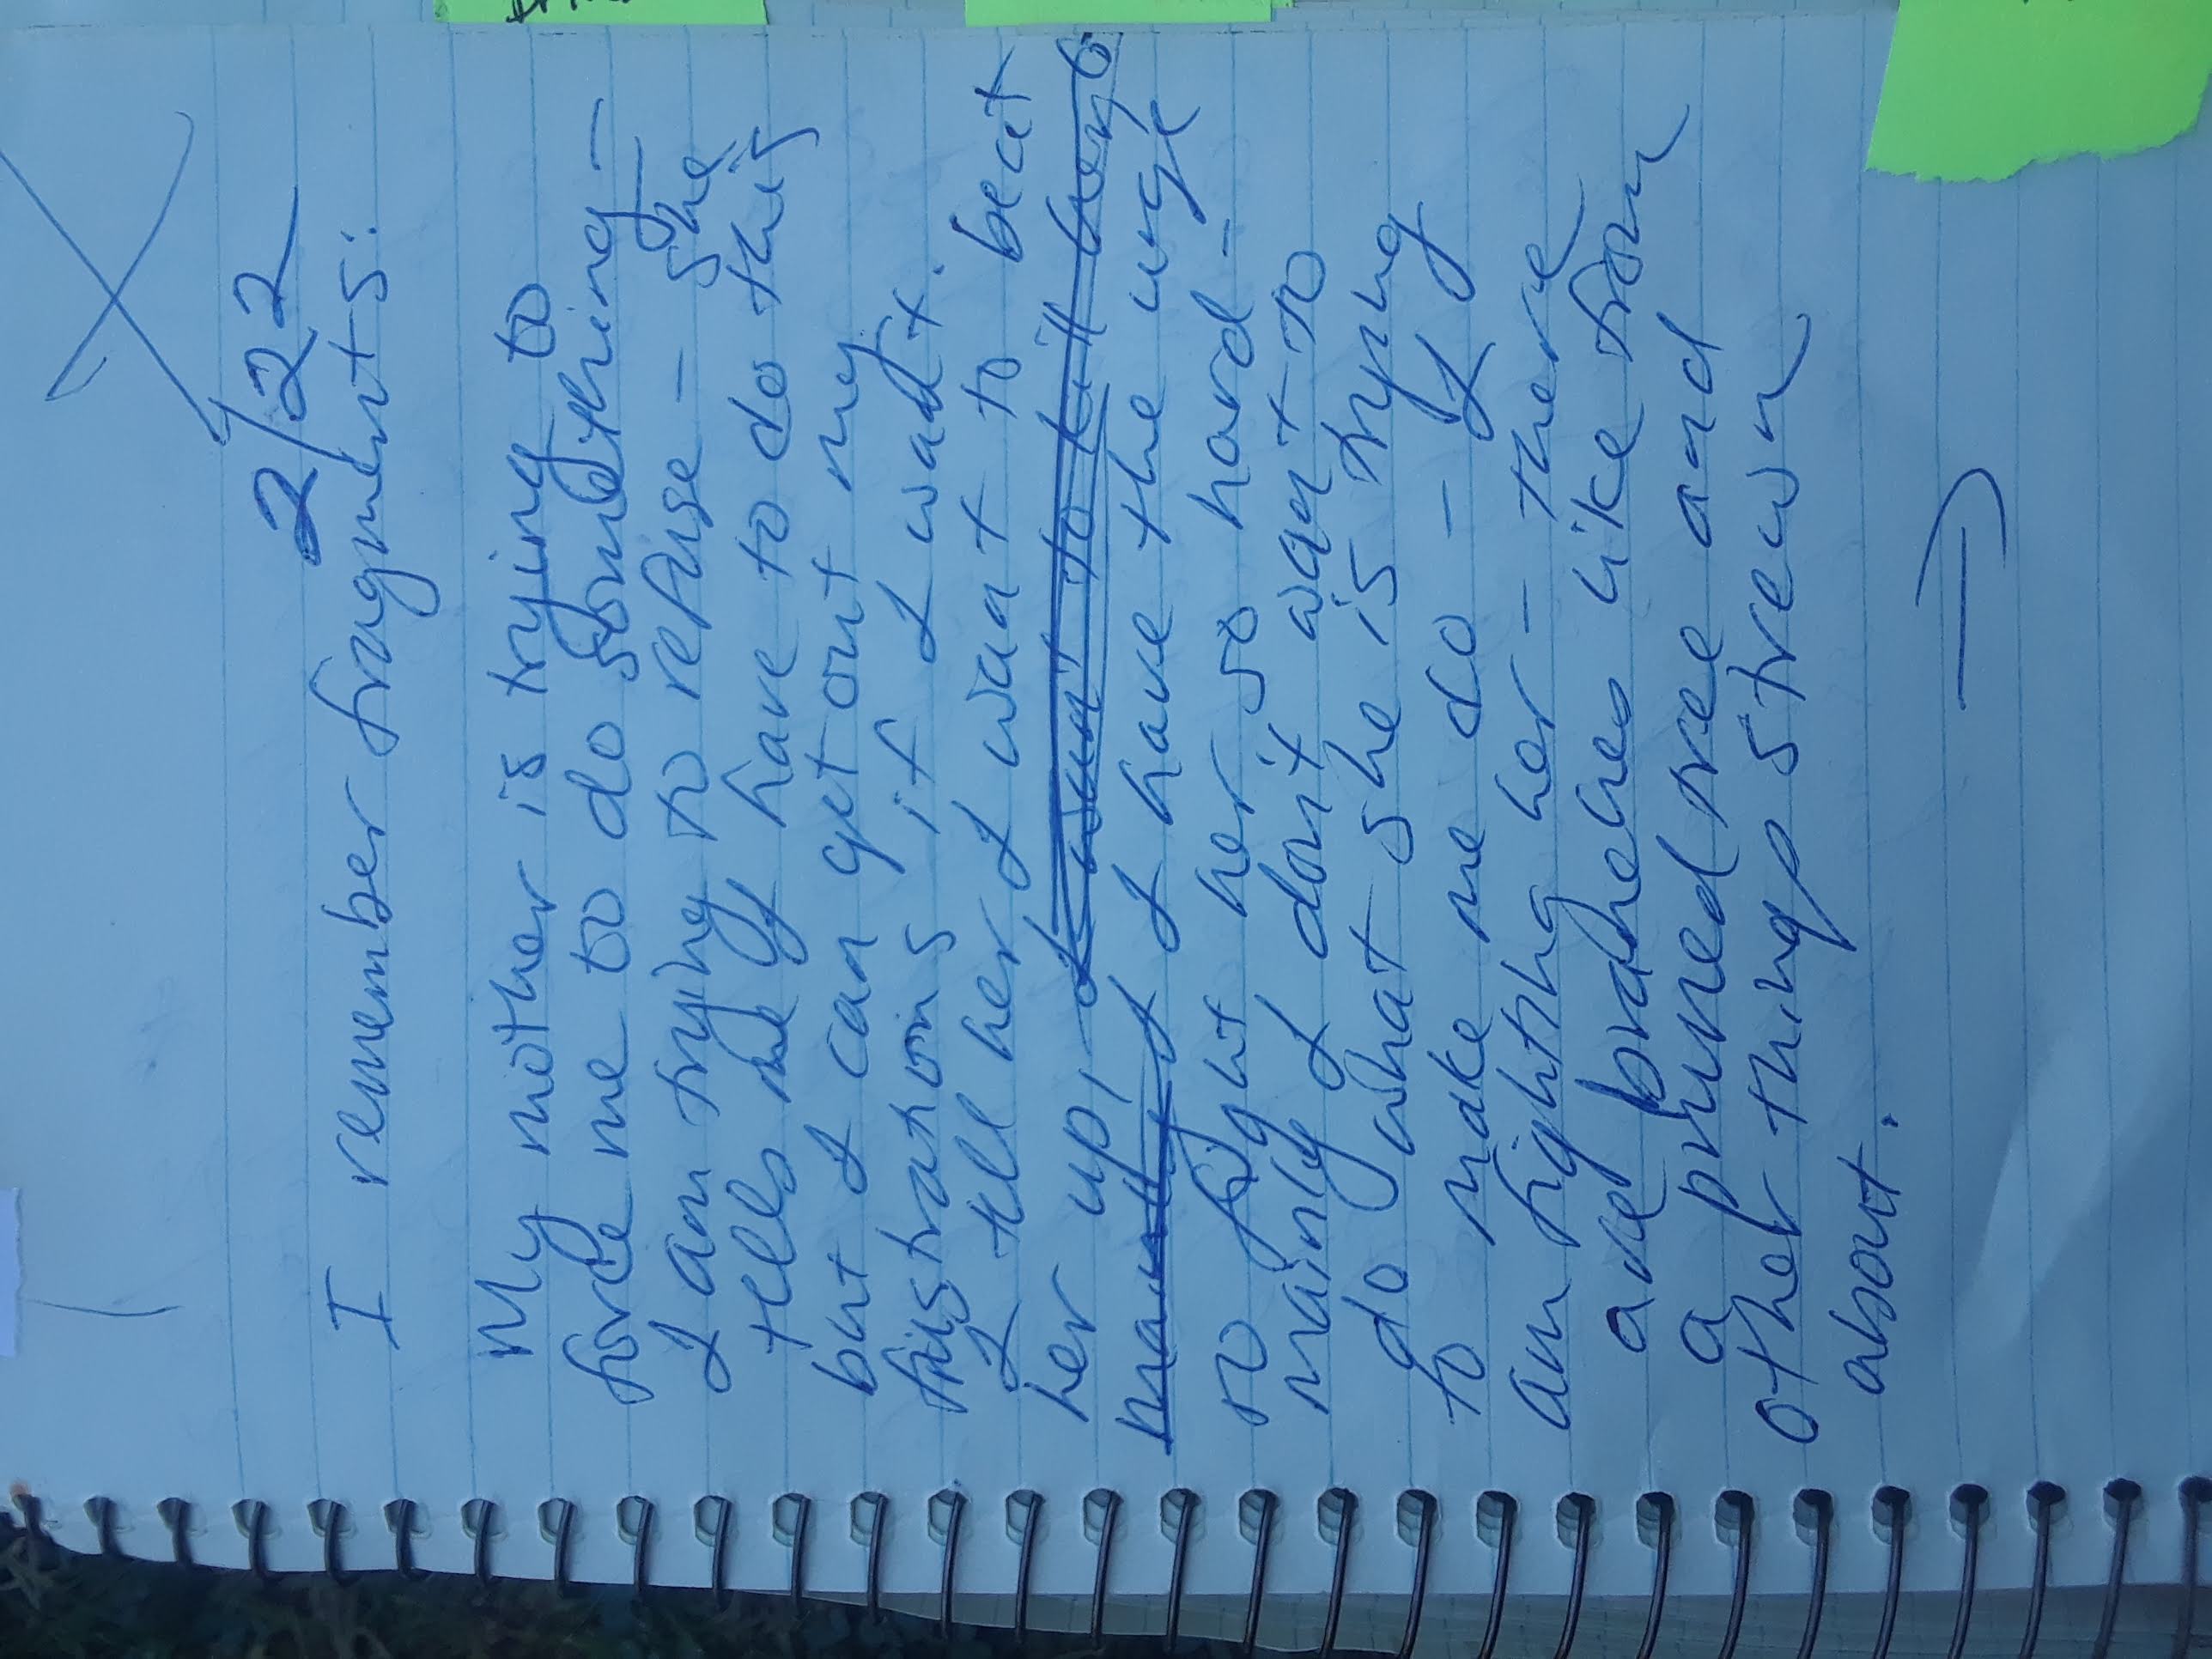 2/22
I remember fragments:
My mother is trying to
force me to do something -
I am trying to refuse - she
tells me I have to do this
but I can get out my
frustrations if I want.
I tell her I want to beat
her up, I want to kill her &
mainly I I have the urge
to fight her so hard -
mainly I don't want to
do what she is trying
to make me do - I
am fighting her - there
are branches like from
a pruned tree and
other things strewn
about.